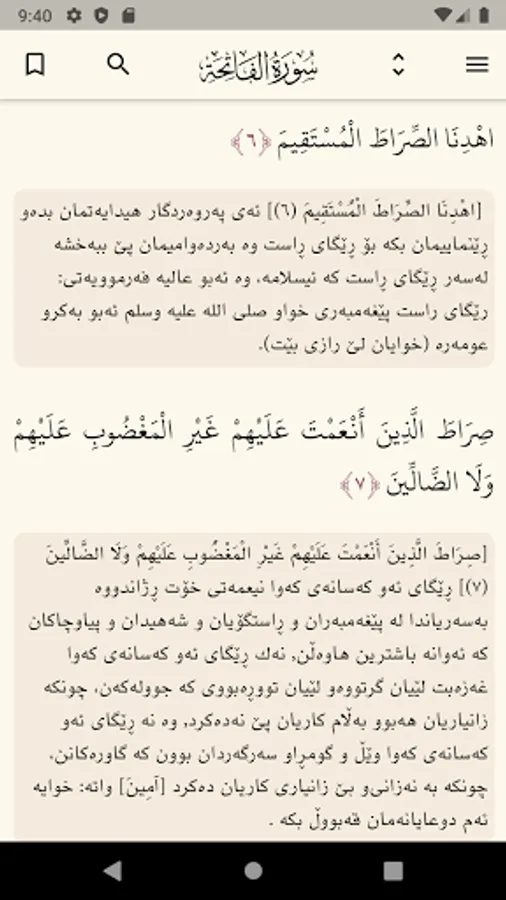 9:40
سُورَةُ الفَاتِحَةِ
اهْدِنَا الصِّرَاطَ الْمُسْتَقِيمَ ﴿٦﴾
[اهْدِنَا الصِّرَاطَ الْمُسْتَقِيمَ (٦)] ئەی پەروەردگار هیدایەتمان بدەو
ڕێنماییمان بكە بۆ ڕێگای ڕاست وە بەردەوامیمان پێ ببەخشە
لەسەر ڕێگای ڕاست كە ئیسلامە، وە ئەبو عالیە فەرموویەتی:
رێگای راست پێغەمبەری خواو صلی الله علیە وسلم ئەبو بەكرو
عومەرە (خوایان لێ رازی بێت).
صِرَاطَ الَّذِينَ أَنْعَمْتَ عَلَيْهِمْ غَيْرِ الْمَغْضُوبِ عَلَيْهِمْ
وَلَا الضَّالِّينَ ﴿٧﴾
[صِرَاطَ الَّذِينَ أَنْعَمْتَ عَلَيْهِمْ غَيْرِ الْمَغْضُوبِ عَلَيْهِمْ وَلَا الضَّالِّينَ
(٧)] ڕێگای ئەو كەسانەی كەوا نیعمەتی خۆت ڕژاندووە
بەسەریاندا لە پێغەمبەران و ڕاستگۆیان و شەهیدان و پیاوچاكان
كە ئەوانە باشترین هاوەڵن، نەك ڕێگای ئەو كەسانەی كەوا
غەزەبت لێیان گرتووەو لێیان تووڕەبووی كە جوولەكەن، چونكە
زانیاریان هەبوو بەڵام كاریان پێ نەدەكرد، وە نە ڕێگای ئەو
كەسانەی كەوا وێڵ و گومڕاو سەرگەردان بوون كە گاورەكانن،
چونكە بە نەزانی‌و بێ زانیاری كاریان دەكرد [آمِینَ] واتە: خوایە
ئەم دوعایانەمان قەبووڵ بكە .